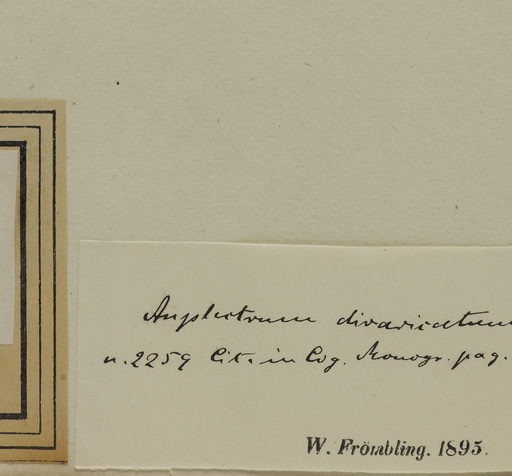 Anplectrum divaricatum
n. 2259 Cit. in Cog. Monogr. pag.
W. Frömbling. 1895.